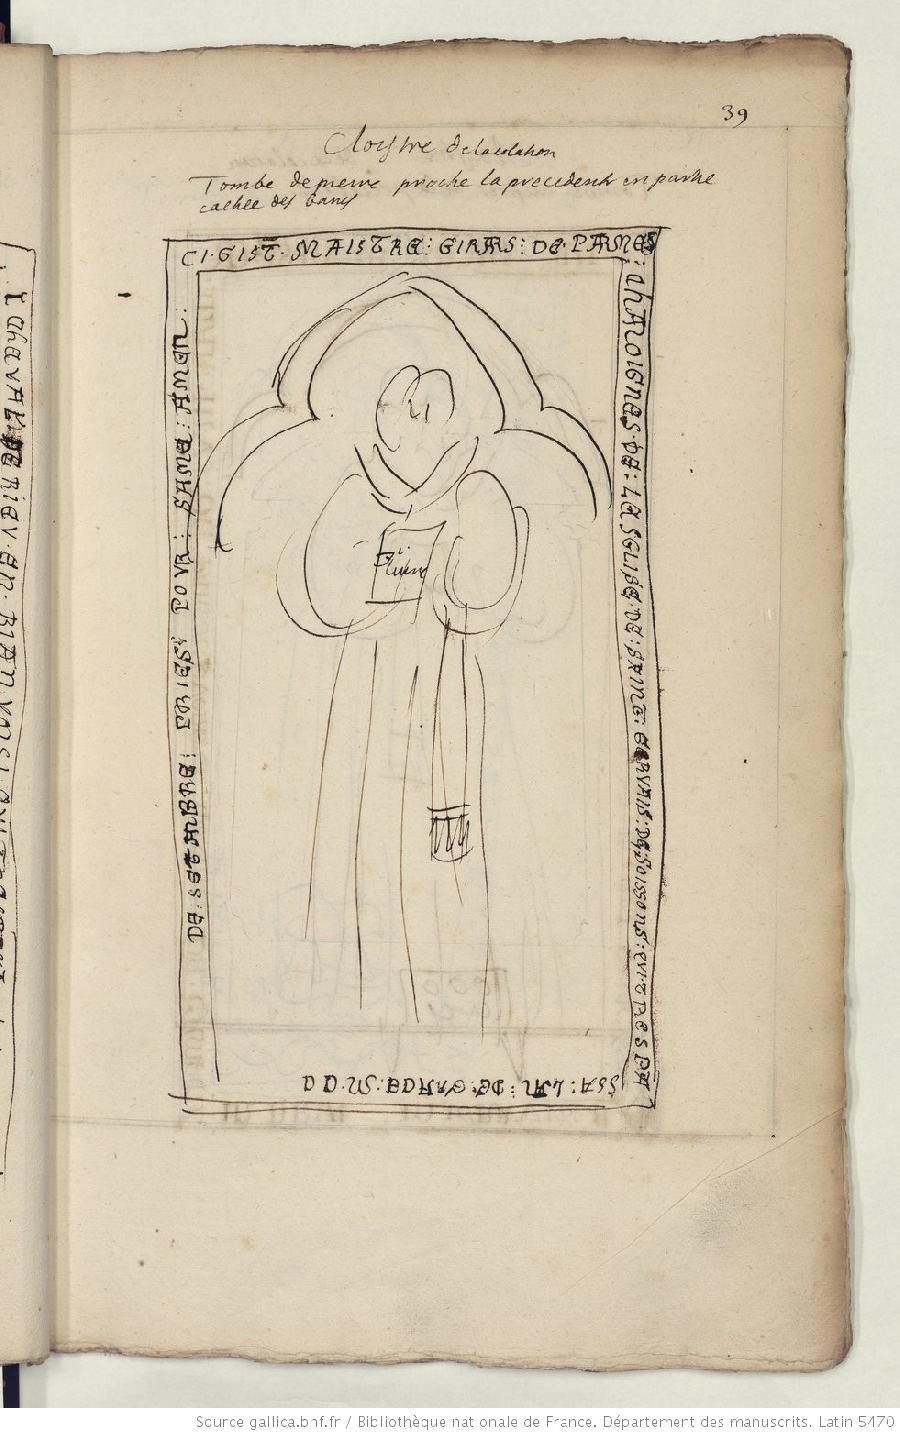 39
Cloistre de la colation
Tombe de pierre proche la precedente en partie
cachée des bancs
CI·GIST· MAISTRE: GIRARS: DE·PAMES
: CHANOIGNES·DE: LESGLISE·DE·SAINT: GERVAIS: DE: SOISSONS: QVI TRESPA
SSA: LAN: DE·GRACE·M·CC
DE·SETAMBRE: PRIES: POVR: SAME: AMEN.
Livre
Source gallica.bnf.fr / Bibliothèque nationale de France. Département des manuscrits. Latin 5470